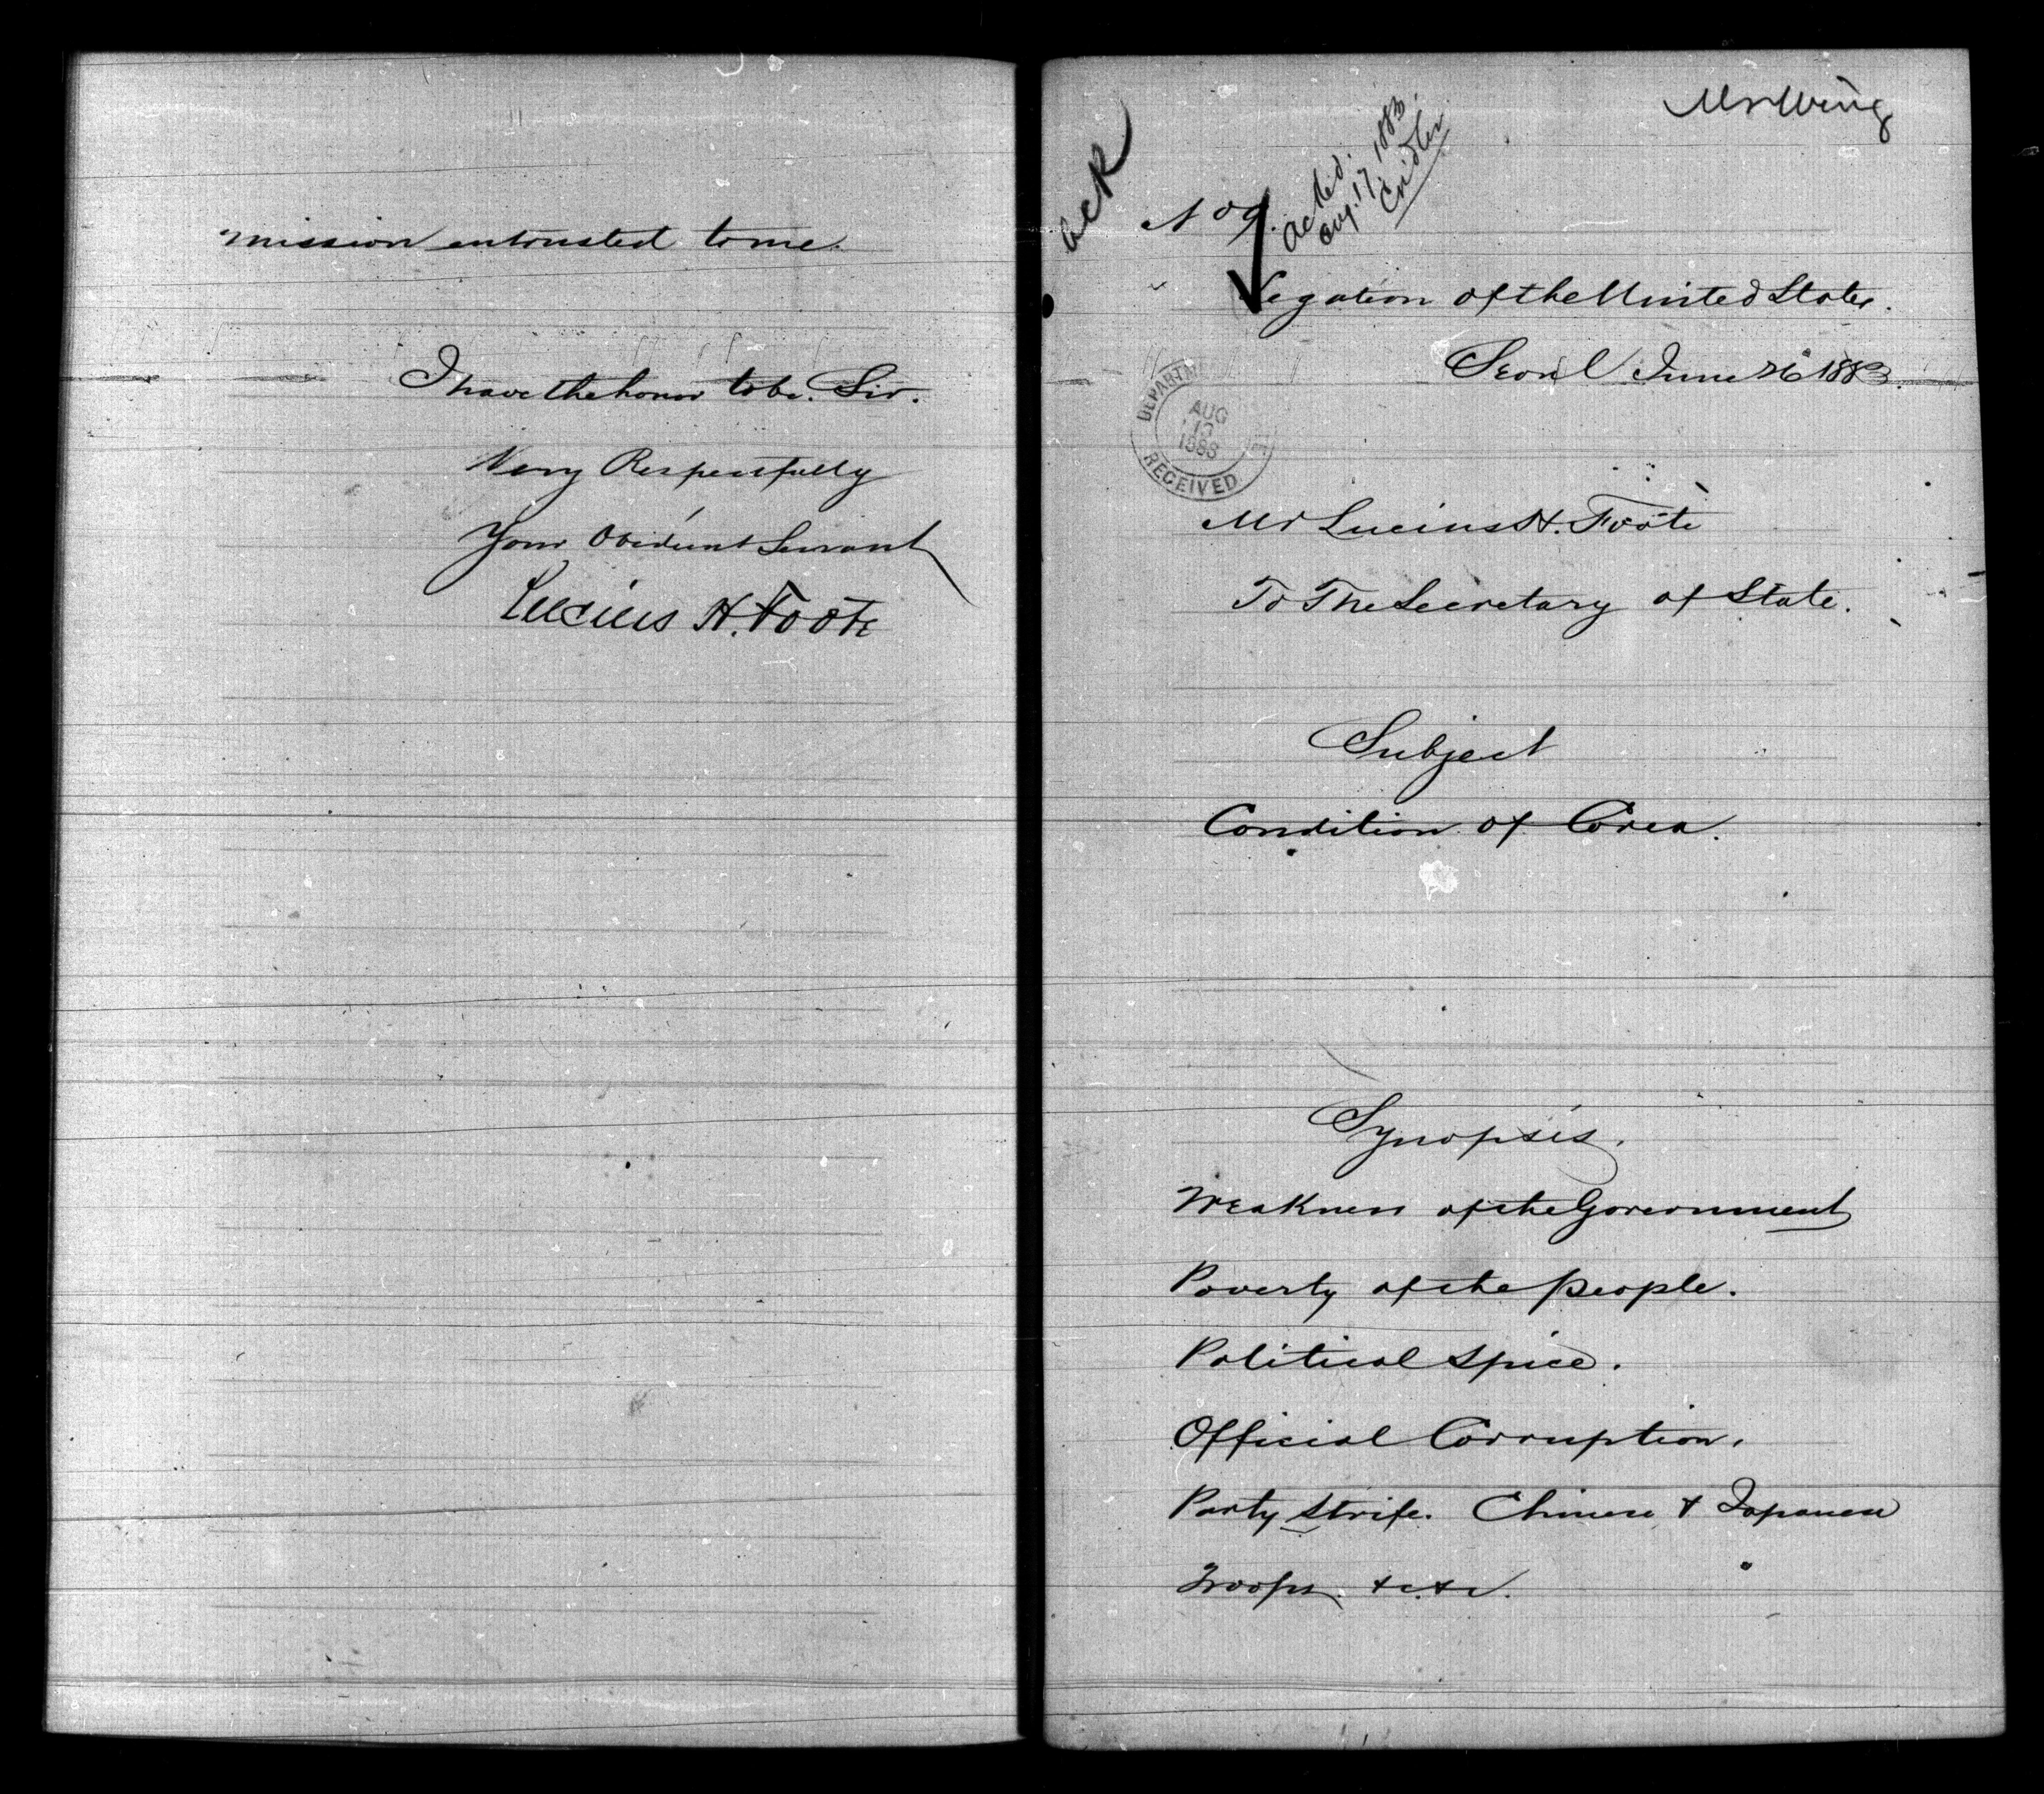 mission entrusted to me.
I have the honor to be. Sir.
Very Respectfully
Your Obedient Servant
Lucius H. Foote
Mr Wing
ack
Ack'd.
Aug. 17 1883.
Cridler
No 9.
Legation of the United States.
Seoul June 26 1883.
DEPARTM
AUG
13
1883
RECEIVED
Mr Lucius H. Foote
To The Secretary of State.
Subject
Condition of Corea.
Synopsis.
Weakness of the Government
Poverty of the people.
Political Spies.
Official Corruption.
Party Strife. Chinese & Japanese
Troops. &c. &c.